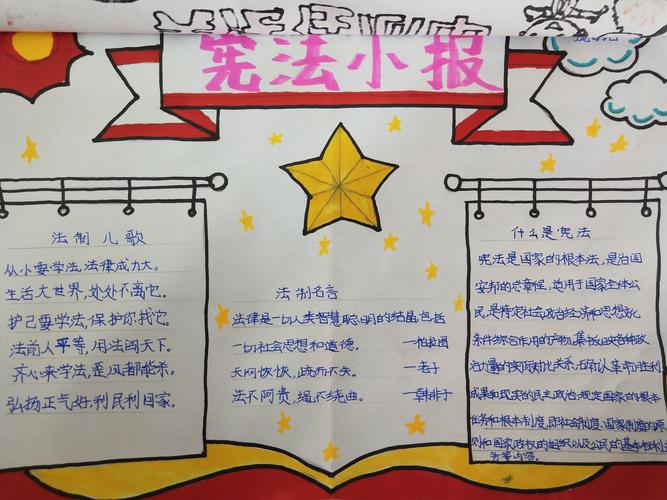 宪法小报
法制儿歌
从小要学法,法律成力大。
生活大世界,处处不离它。
护己要学法,保护你找它。
法前人平等,用法闯天下。
齐心来学法,歪风都能杀。
弘扬正气好,利民利国家。
法制名言
法律是一切人类智慧聪明的结晶,包括
一切社会思想和道德。 一柏拉图
天网恢恢,疏而不失。 一老子
法不阿贵,绳不绕曲。 一韩非子
什么是宪法
宪法是国家的根本法,是治国
安邦的总章程,适用于国家全体公
民,是特定社会政治经济和思想文化
条件综合作用的产物,集中反映各种政
治力量的实际对比关系,确认革命胜利
成果和现实的民主政治,规定国家的根本
任务和根本制度,即社会制度、国家制度的原
则和国家政权的组织以及公民的基本权利
务等内容。